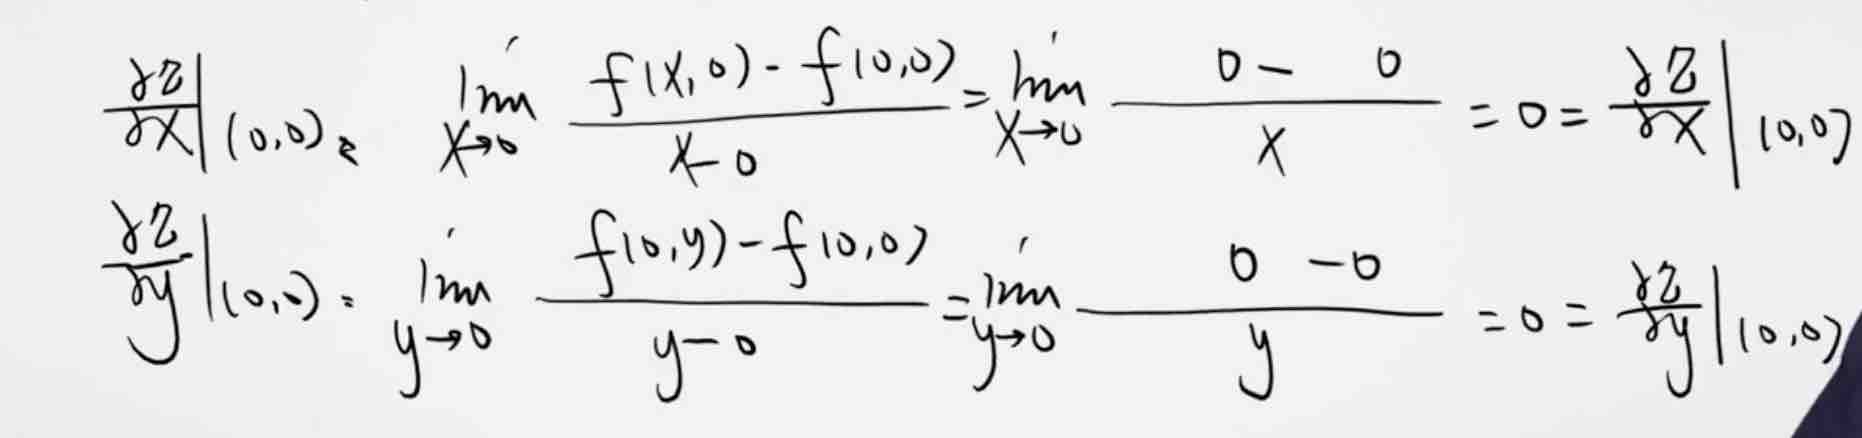 ∂z/∂x|(0,0) = lim x→0 (f(x,0)-f(0,0))/(x-0) = lim x→0 (0-0)/x = 0 = ∂z/∂x|(0,0)
∂z/∂y|(0,0) = lim y→0 (f(0,y)-f(0,0))/(y-0) = lim y→0 (0-0)/y = 0 = ∂z/∂y|(0,0)